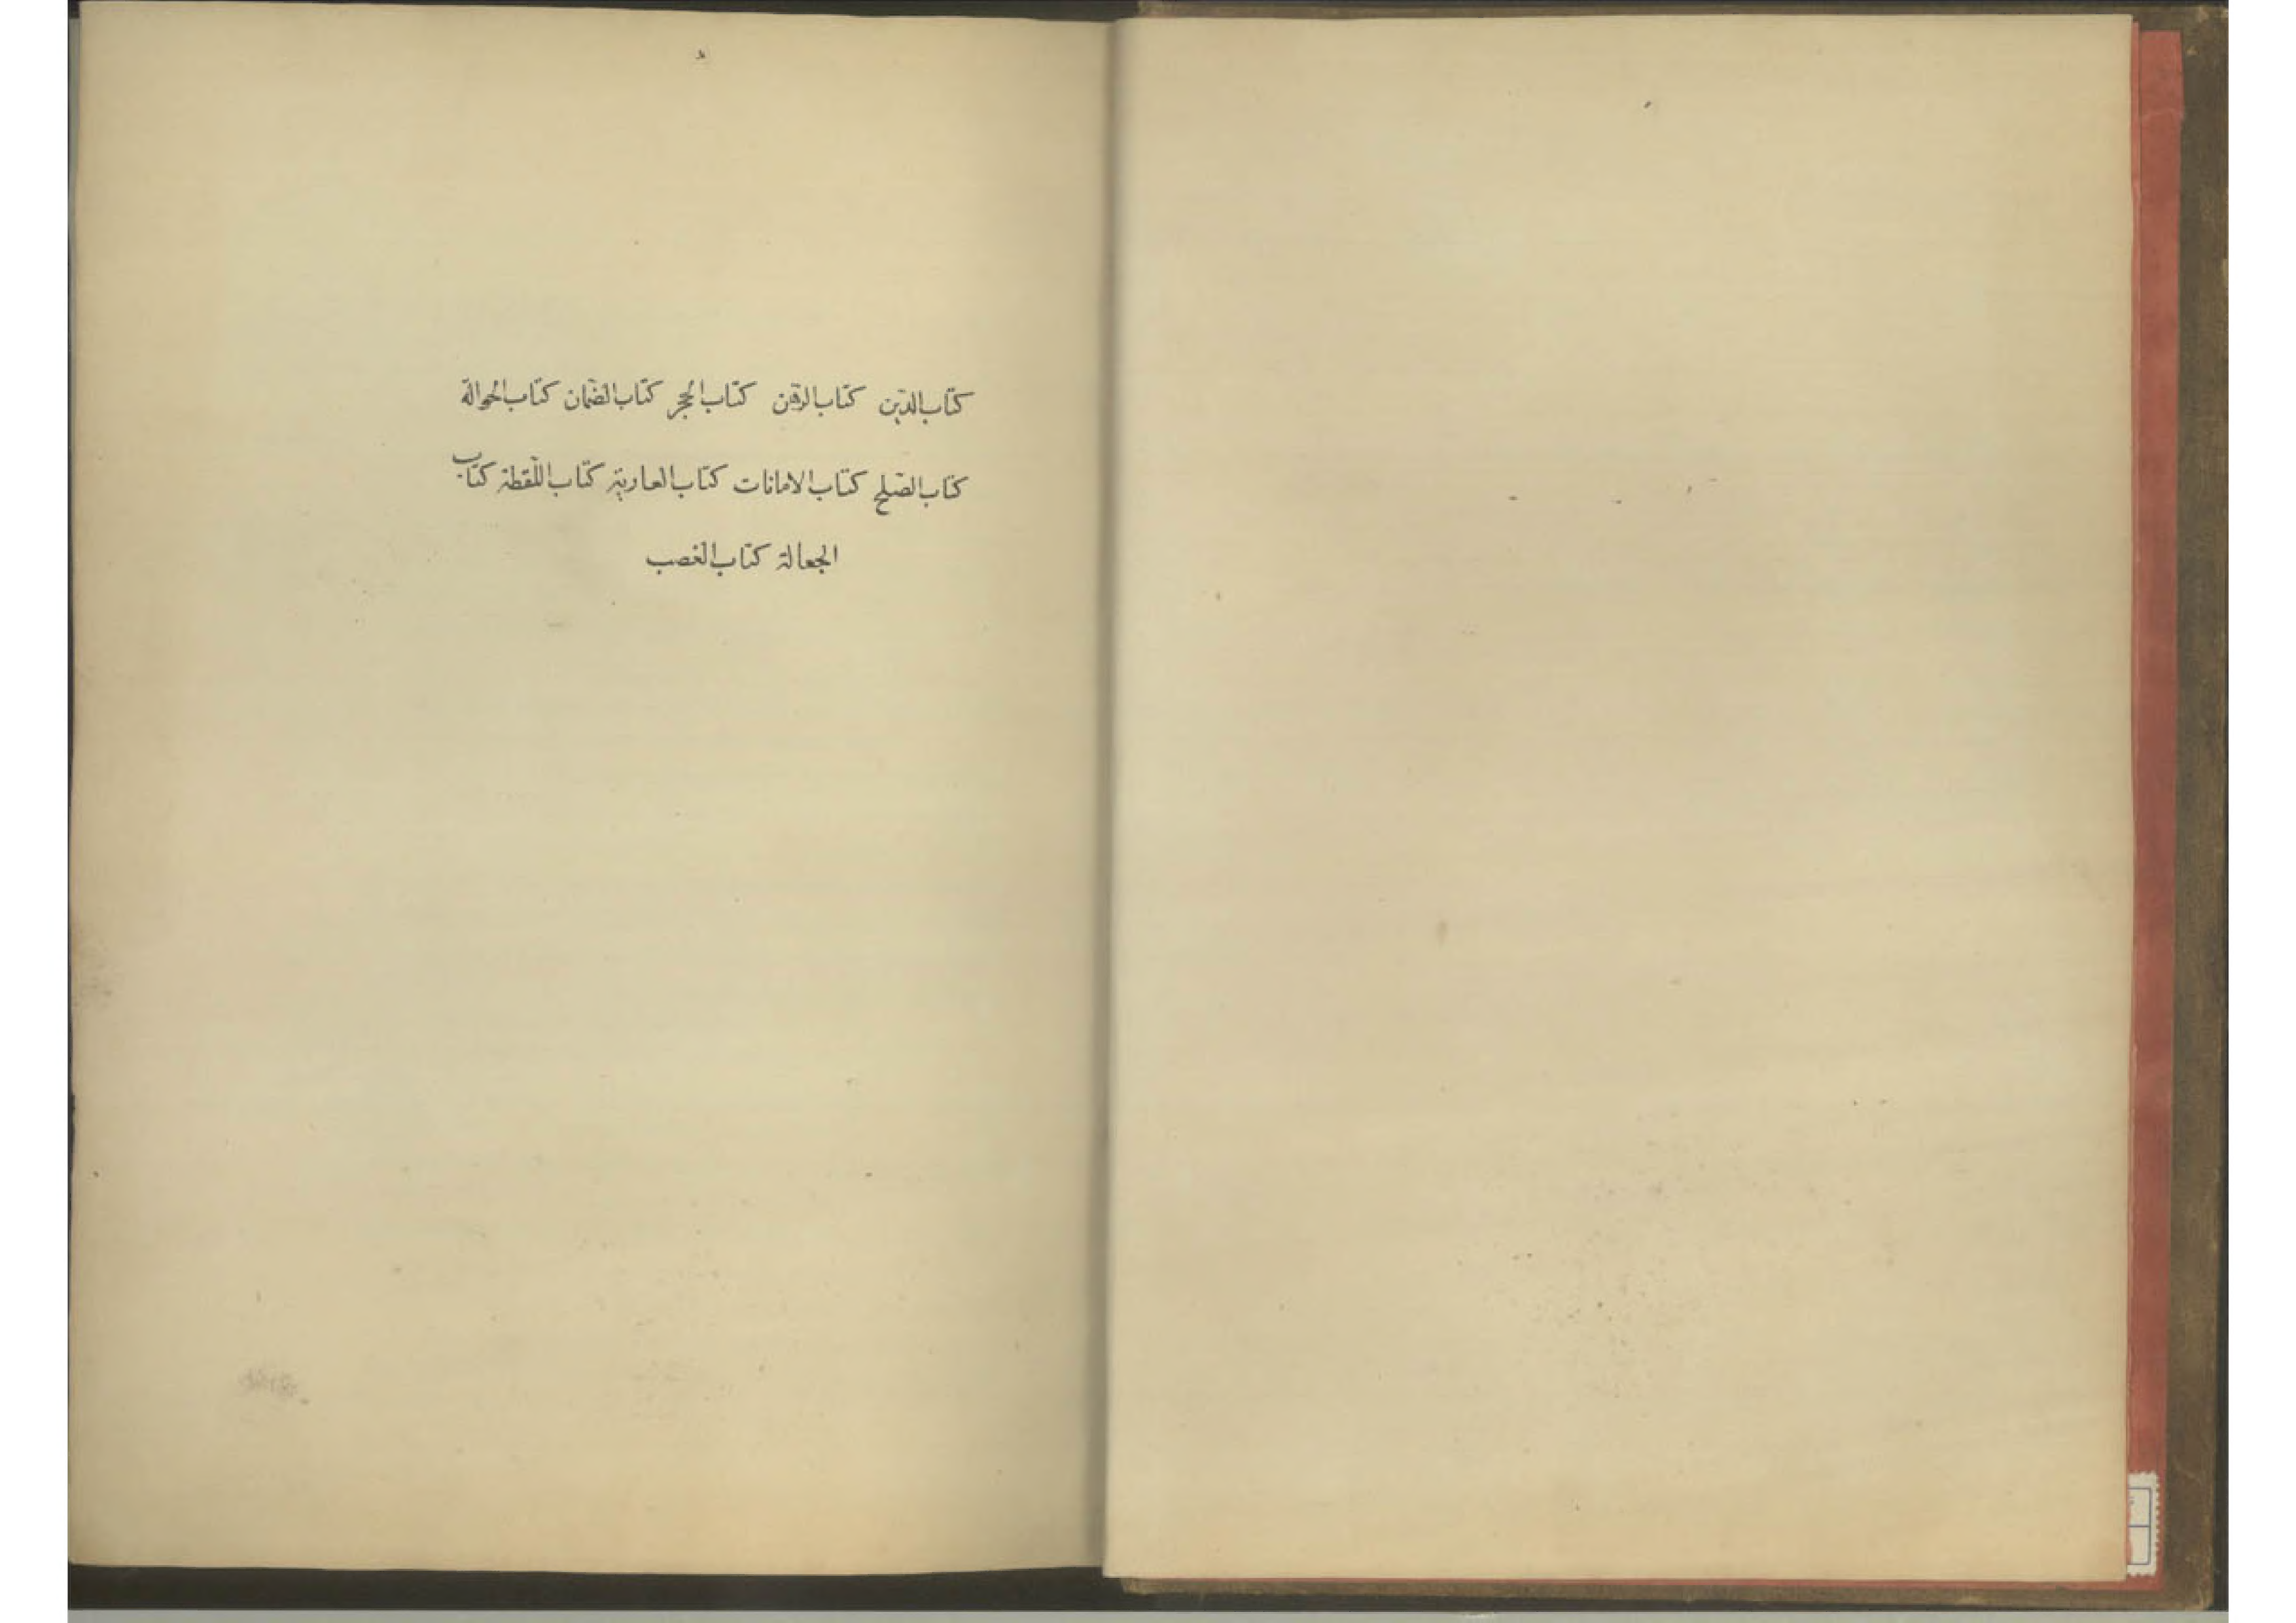 كتاب الدّين كتاب الرّهن كتاب الحجر كتاب الضّمان كتاب الحوالة
كتاب الصّلح كتاب الامانات كتاب العارية كتاب اللّقطة كتاب
الجعالة كتاب الغصب